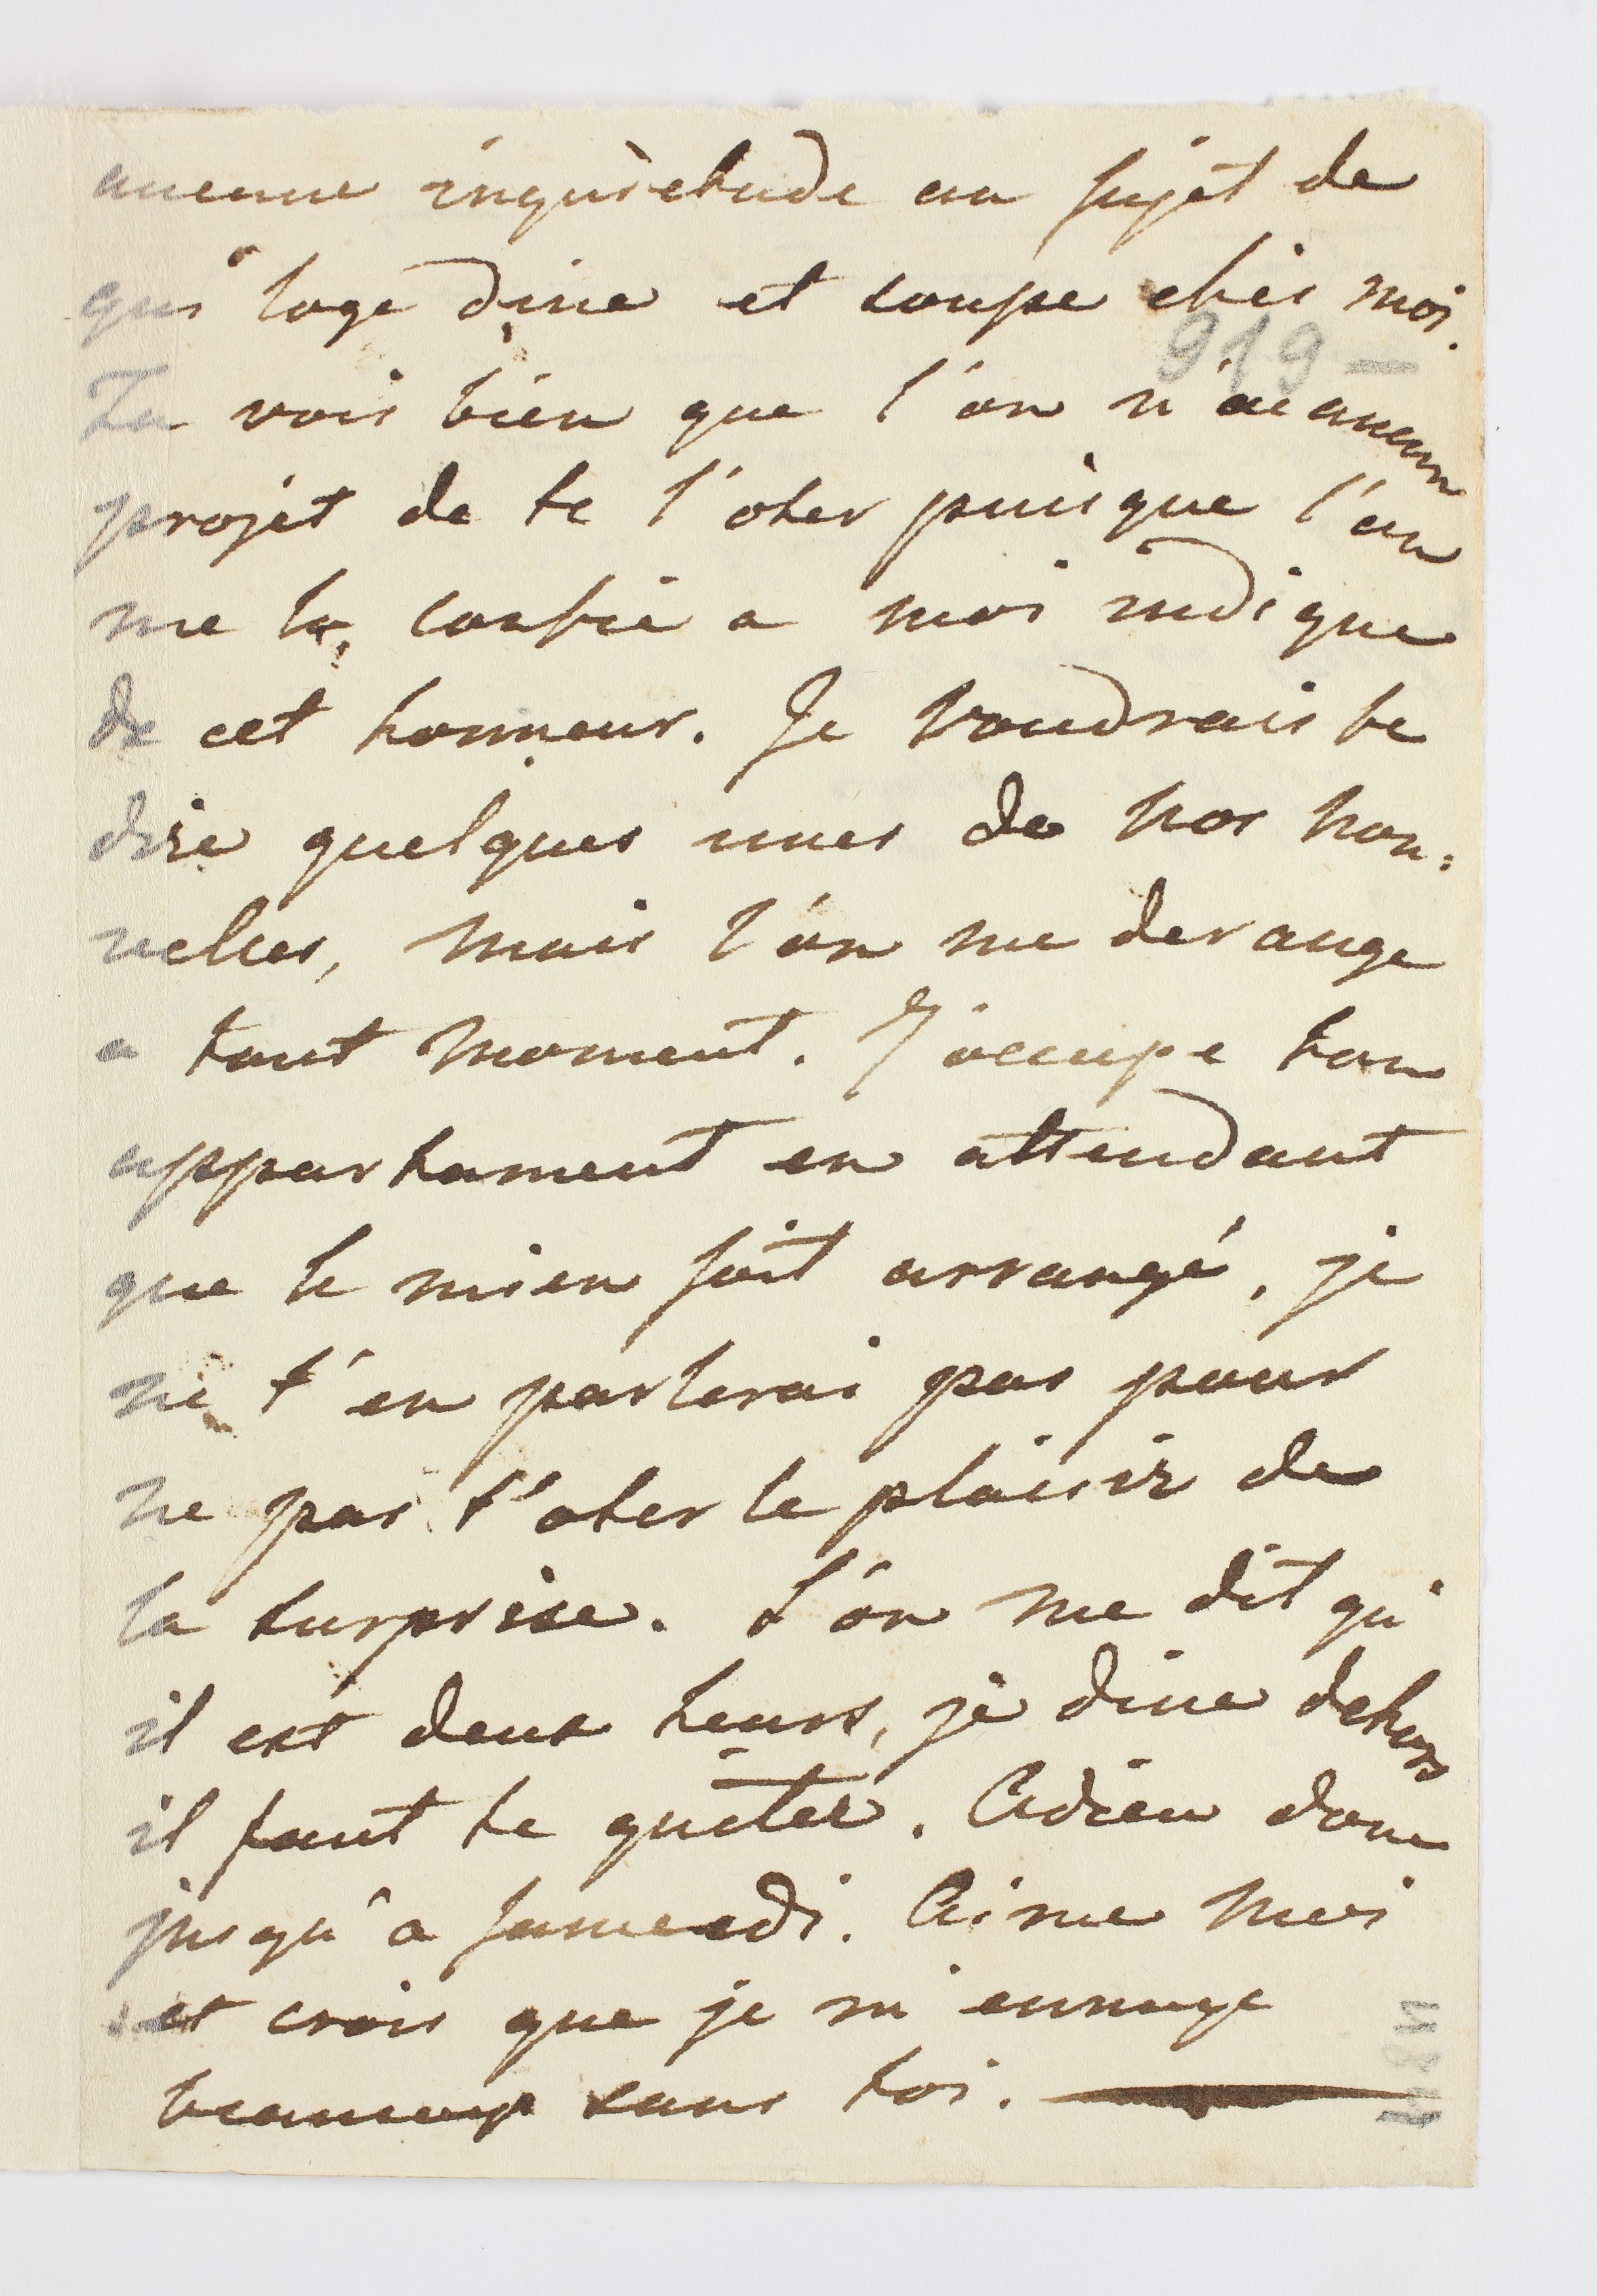 aucune inquiètude au sujet de
qui loge dine et soupe chés moi.
919 —
Tu vois bien que l'on n'a aucun
projet de te l'oter puisque l'on
me la confie a moi indique
de cet honneur. Je voudrais te
dire quelques unes de nos nou:
velles, mais l'on me derange
a tout moment. J'occupe ton
appartament en attendant
que le mien soit arrangé, je
ne t'en parlerai pas pour
ne pas t'oter le plaisir de
la surprise. L'on me dit qu'
il est deux heurs, je dine dehors
il faut te quiter. Adieu donc
jusqu'a samedi. Aime moi
et crois que je m'ennuye
beaucoup sans toi.